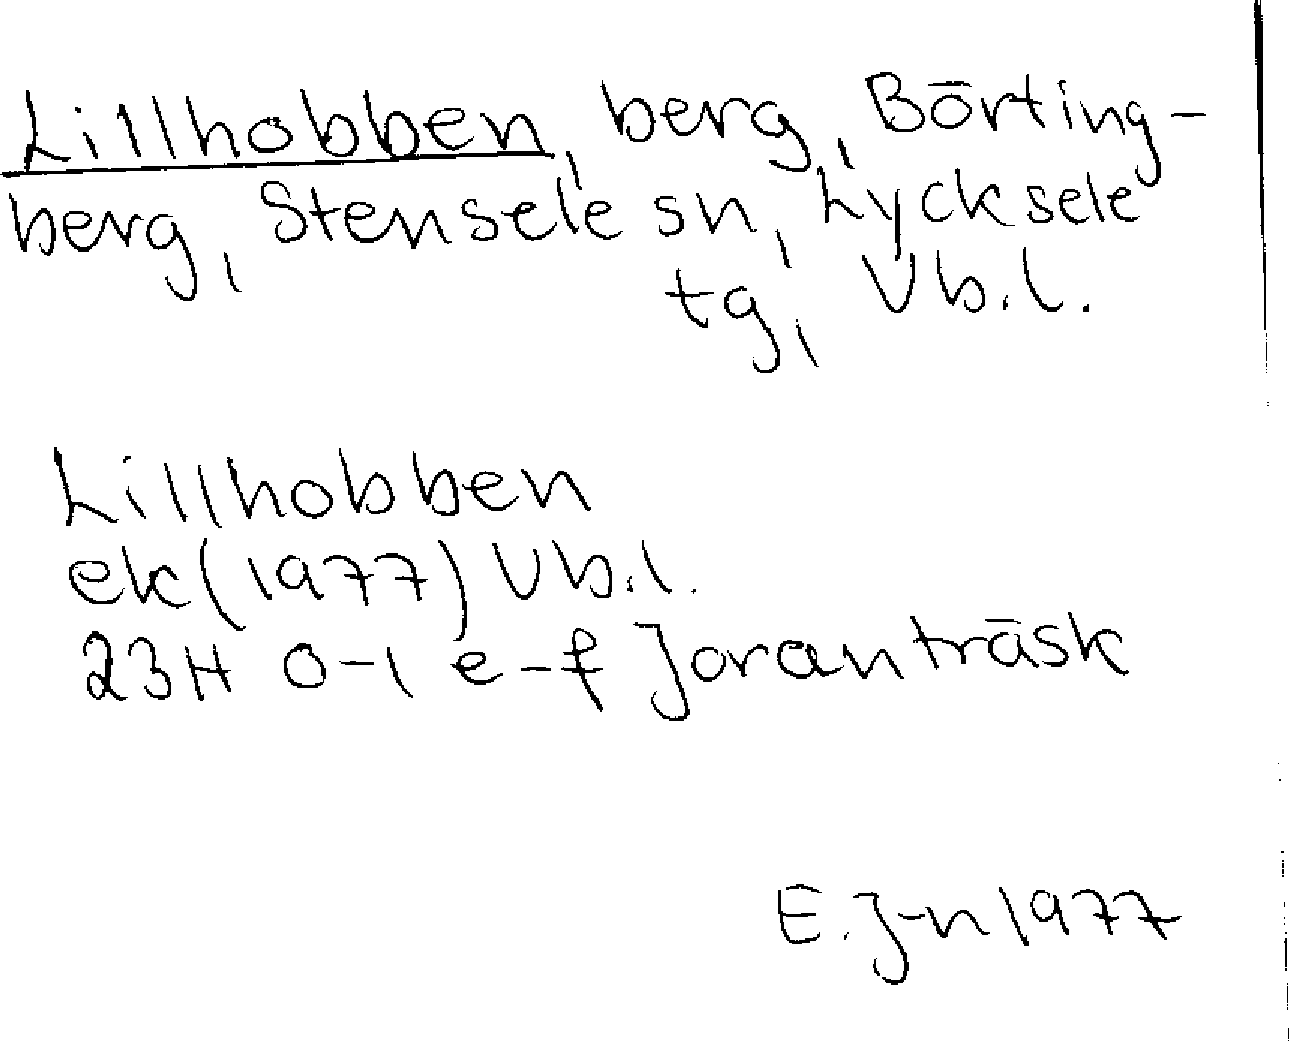 Lillhobben, berg, Börting-
berg, Stensele sn, Lycksele
tg, Vb.l.
Lillhobben
ek(1977) Vb.l.
23H 0-1 e-f Joranträsk
E.J-n 1977